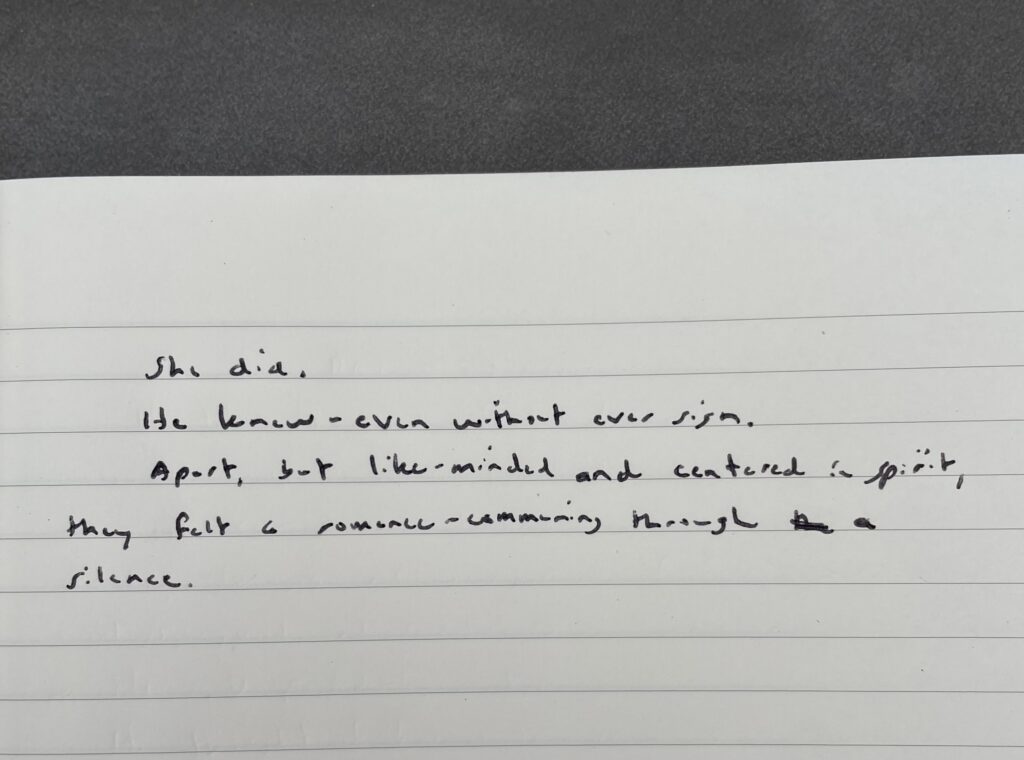 She did.
He knew - even without ever sign.
Apart, but like-minded and centered in spirit,
they felt a romance - communing through a
silence.